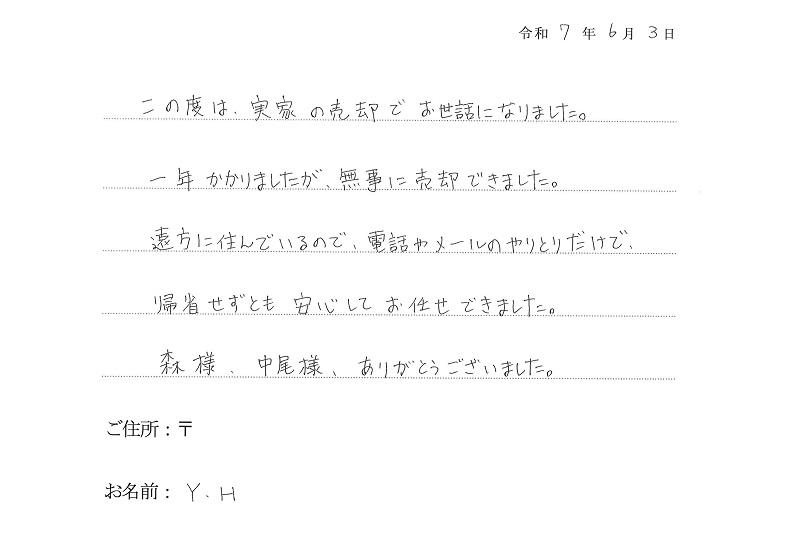 令和 7 年 6 月 3 日
この度は、実家の売却でお世話になりました。
一年かかりましたが、無事に売却できました。
遠方に住んでいるので、電話やメールのやりとりだけで、
帰省せずとも安心してお任せできました。
森様、中尾様、ありがとうございました。
ご住所：〒
お名前： Y.H